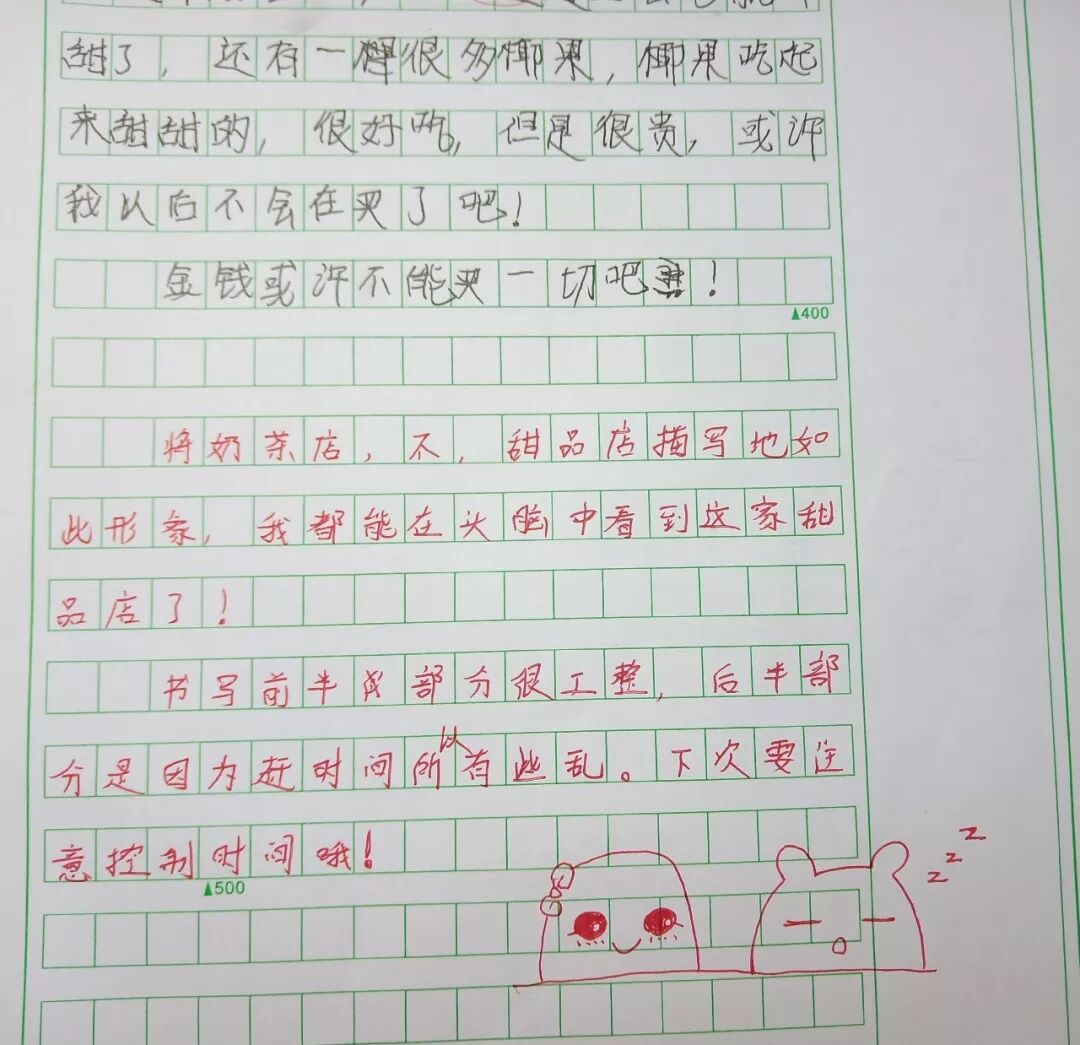 甜了，还有一样很多椰果，椰果吃起
来甜甜的，很好吃，但是很贵，或许
我以后不会在买了吧！
金钱或许不能买一切吧！
▲400
将奶茶店，不，甜品店描写地如
此形象，我都能在头脑中看到这家甜
品店了！
书写前半部分很工整，后半部
分是因为赶时间所以有些乱。下次要注
意控制时间哦！
▲500
z z z